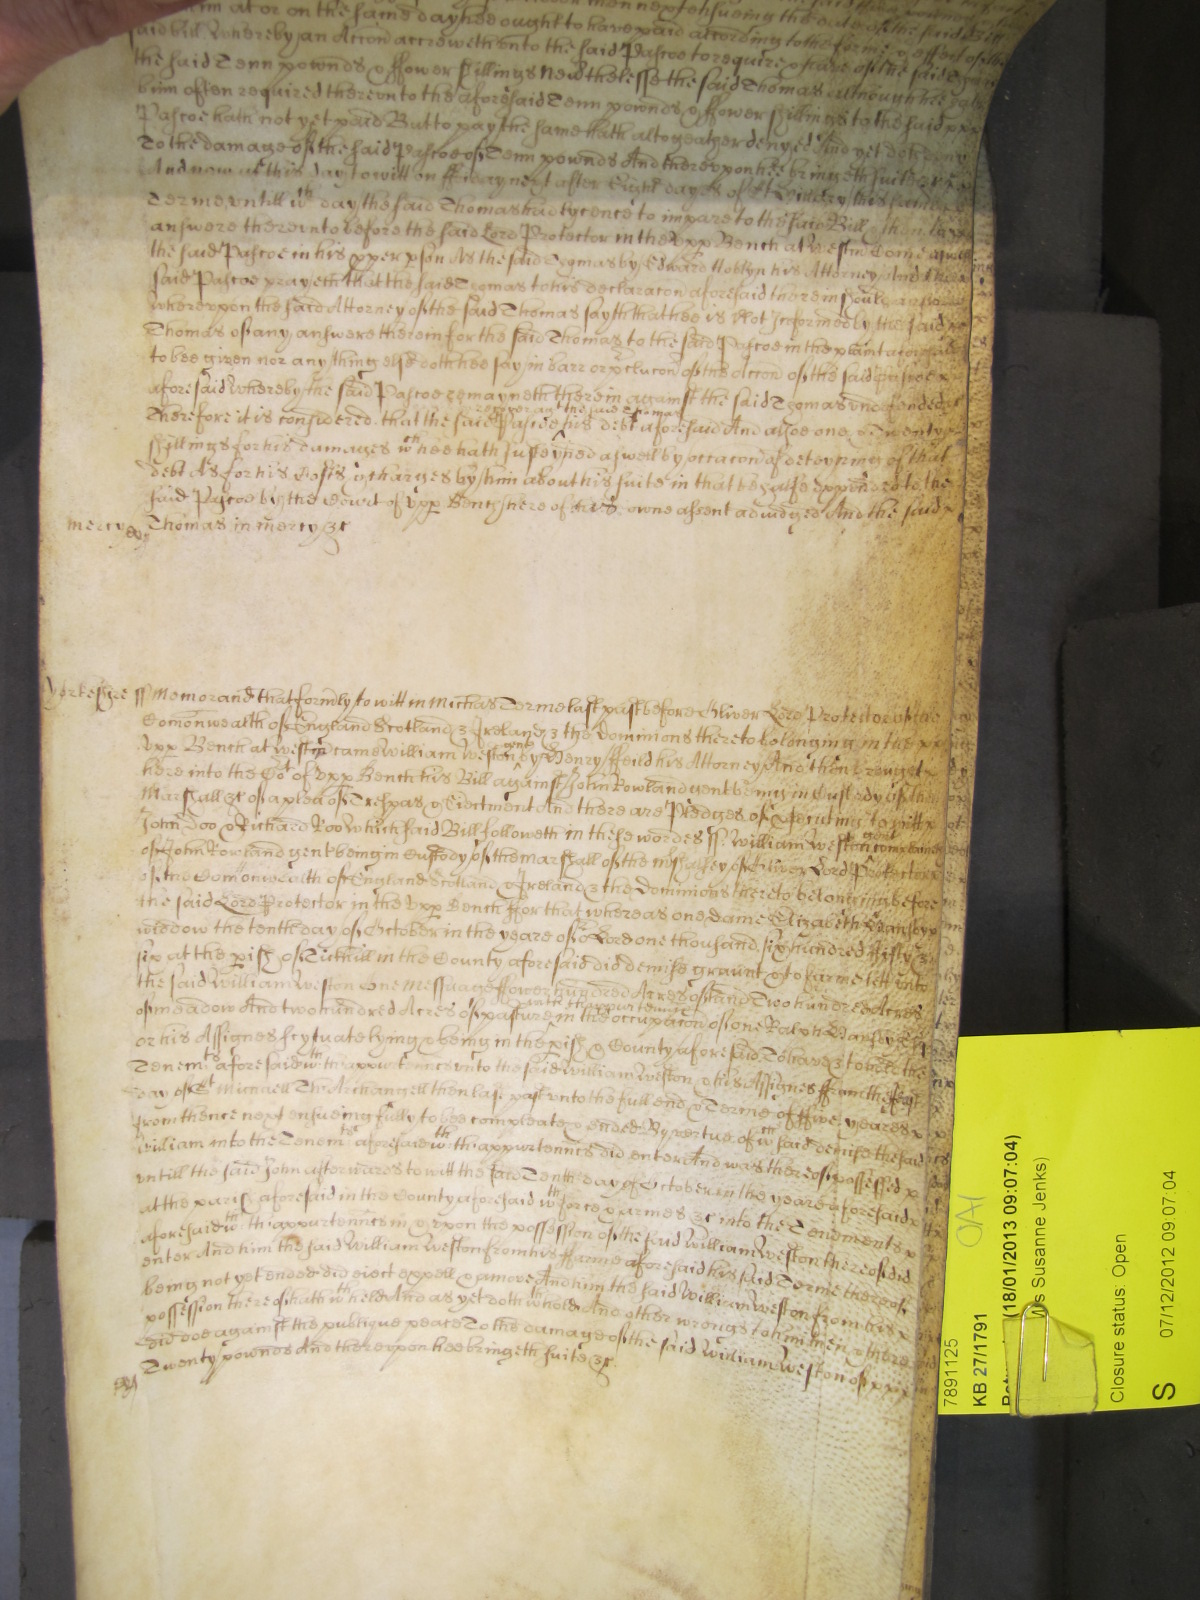 him at or on the same day hee ought to have paid according to the forme & effect of the
said Bill Whereby an Accon accreweth unto the said Pascoe to require & have of the said Thomas
the said Tenn pownds & ffower shillings Nevthelesse the said Thomas although hee hath
bin often required therevnto the aforesaid Tenn pownds & ffower shillings to the said
Pascoe hath not yet paid But to pay the same hath altogeather denyed And yet doth deny
To the damage of the said Pascoe of Tenn pownds And therevpon hee bringeth suite &c
And now at this day to witt on ffriday next after Eight dayes of St Hillary this same
Terme vntill wch day the said Thomas had lycence to impare to the said Bill & then to
answere therevnto before the said Lord Protector in the vpp Bench at Westm Come aswell
the said Pascoe in his pper pson As the said Thomas by Edward Hoblyn his Attorney And the
said Pascoe prayeth that the said Thomas to his declaracon aforesaid therein should answere
Wherevpon the said Attorney of the said Thomas sayth that hee is Not Informed by the said
Thomas of any answere therein for the said Thomas to the said Pascoe in the plaint aforesaid
to bee given nor any thing else doth hee say in barr or pclucon of the Accon of the said Pascoe
aforesaid Whereby the said Pascoe remayneth therein against the said Thomas vndefended
recover agt the said Thomas
Therefore it is considered that the said Pascoe his debt aforesaid And alsoe one & Twenty
shillings for his damages wch hee hath susteyned aswell by occacon of deteyning of that
debt As for his Costs & charges by him about his suite in that behalfe expended to the
said Pascoe by the Court of vpp Bench here of his owne assent adiudged And the said
mercy Thomas in mercy &c
Yorkeshire ss Memorand that formly to witt in Michas Terme last past before Oliver Lord Protector of the
Comonwealth of England Scotland & Ireland & the Dominions thereto belonging in the
vpp Bench at Westm came William Weston gent by Henry ffend his Attorney And then brought
here into the Cot of vpp Bench his Bill against John Rowland gent being in Custody of the
Marshall &c of a plea of Trespas & Eiectment And there are Pledges of psecuting to witt
John Doo & Richard Roo Which said Bill followeth in these wordes ss William Weston gent complaines
of John Rowland gent being in Custody of the Marshall of the Mshalsey of Oliver Lord Protector
of the Comonwealth of England Scotland & Ireland & the Dominions thereto belonging before
the said Lord Protector in the vpp Bench ffor that whereas one dame Elizabeth
widdow the tenth day of October in the yeare of or Lord one thousand six hundred fifty &
six at the pish of Tickhill in the County aforesaid did demise graunt & to farme lett vnto
the said William Weston One Messuage ffower hundred Acres of land Two hundred Acres
with thappurtennces
of meadow And two hundred Acres of pasture in the occupacon of one Ralph
or his Assignes scytuate lying & being in the pish & County aforesaid To have & to hold the
Tenemts aforesaid wth thappurtennces vnto the said William Weston & his Assignes ffrom the feast
day of St Michaell The Archangell then last past vnto the full end & Terme of ffive yeares
from thence next ensueing fully to bee compleate & ended By vertue of wch said demise the said
William into the Tenemts aforesaid wth thappurtennces did enter And was thereof possessed
vntill the said John afterwards to witt the said Tenth day of October in the yeare aforesaid
at the parish aforesaid in the County aforesaid wth force & armes &c into the Tenements
aforesaid wth thappurtennces in & vpon the possession of the said William Weston thereof did
enter And him the said William Weston from his ffarme aforesaid his said Terme thereof
being not yet ended did eiect expell & amove And him the said William Weston from his
possession thereof hath wthheld And as yet doth wthhold And other wrongs to him then & there
did doe against the publique peace To the damage of the said William Weston of
Twenty pownds And therevpon hee bringeth suite &c
7891125
KB 27/1791
(18/01/2013 09:07:04)
Ms Susanne Jenks)
Closure status: Open
S
07/12/2012 09:07:04